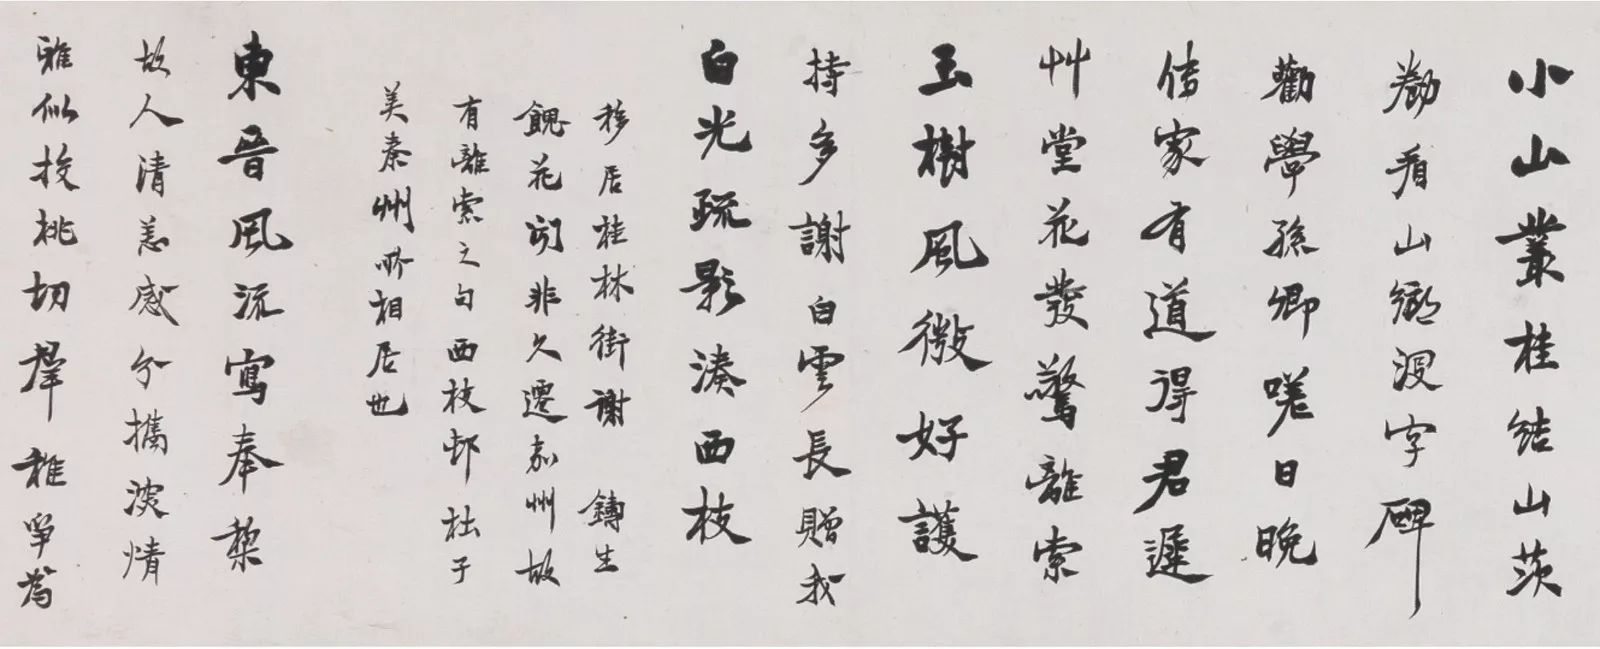 小山叢桂結山茨
勸看山鄉沒字碑
勸學孫卿嗟日晚
傳家有道得君遲
艸堂花發驚離索
玉樹風微好護
持多謝白雲長贈我
白光疏影湊西枝
移居桂林街謝鑄生
餽花 非久遷嘉州故
有離索之句西枝邨杜子
美秦州所相居也
東晉風流寫奉
故人清恙感分攜淡情
雅似投桃切群雅爭為